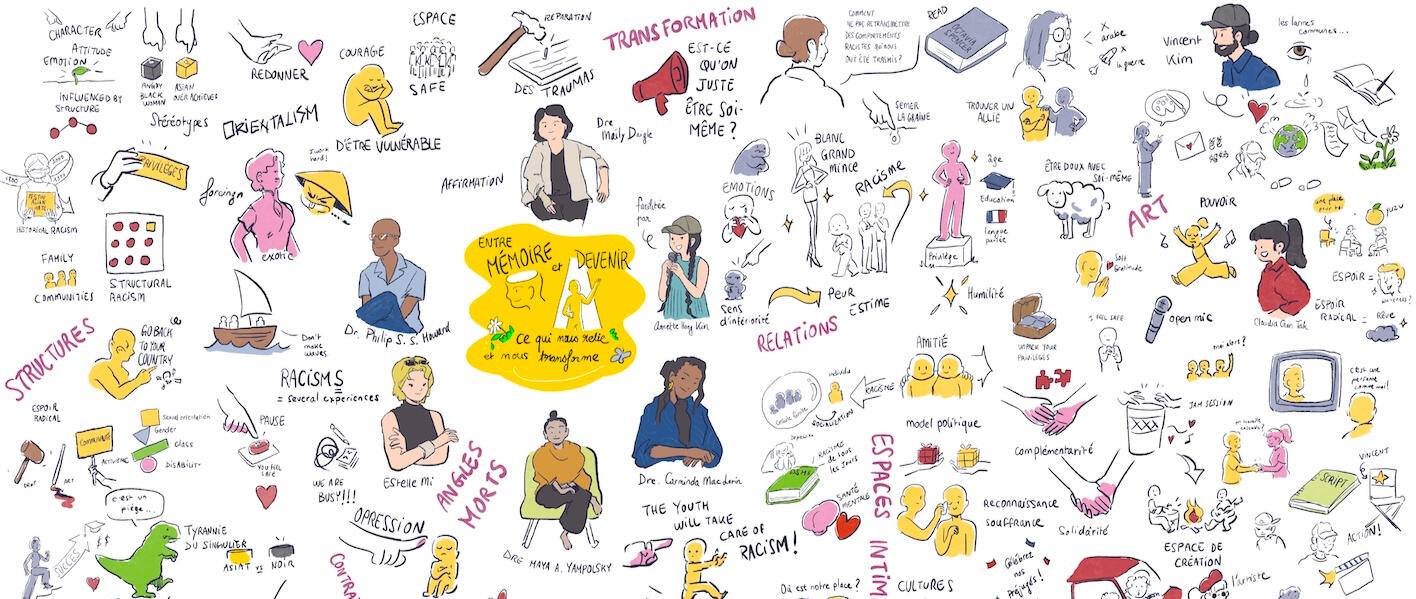 CHARACTER
ATTITUDE
EMOTION
INFLUENCED BY
STRUCTURE
ANGRY
BLACK
WOMAN
ASIAN
OVERACHIEVER
Stéréotypes
REDONNER
COURAGE
D'ÊTRE VULNÉRABLE
ESPACE
SAFE
REPARATION
DES TRAUMAS
TRANSFORMATION
EST-CE
QU'ON
JUSTE
ÊTRE SOI-
MÊME ?
COMMENT
NE PAS RETRANSMETTRE
DES COMPORTEMENTS
RACISTES QUI NOUS
ONT ÉTÉ TRASMIS ?
READ
OCTAVIA
SPENCER
SEMER
LA GRAINE
arabe
la guerre
TROUVER UN
ALLIÉ
Vincent
Kim
les larmes
communes...
ORIENTALISM
foreign
exotic
work
hard!
PRIVILEGES
HISTORICAL RACISM
FAMILY
COMMUNITIES
STRUCTURAL
RACISM
AFFIRMATION
Dre
Maily Daigle
facilitée
par
EMOTIONS
Sens
d'infériorité
BLANC
GRAND
MINCE
RACISME
PEUR
ESTIME
âge
Education
langue
parlée
Privilège
Humilité
ÊTRE DOUX AVEC
SOI-MÊME
Self
Gratitude
ART
POUVOIR
une place
pour toi
YUZU
ESPOIR =
ESPOIR
RADICAL =
Rêve
open mic
ENTRE
MÉMOIRE et DEVENIR
Ce qui nous relie
et nous transforme
Dr. Philip S. S. Howard
Don't
make
waves
STRUCTURES
GO BACK
TO YOUR
COUNTRY
RACISMS
= several experiences
RELATIONS
AMITIÉ
I FEEL SAFE
UNPACK YOUR
PRIVILEGES
ESPOIR
RADICAL
DROIT
ART
COMMUNAUTÉ
ACTIVISME
Sexual orientation
Gender
class
DISABILITY
PAUSE
YOU FEEL
SAFE
WE ARE
BUSY!!!
Estelle Mi
ANGLES
MORTS
Individu
SOCIALIZATION
RACISME
Depression
DSM5
RACISME
de tous
les jours
SANTÉ
MENTALE
model politique
Complémentarité
JAM SESSION
C'EST UNE
PERSONNE
COMME MOI!
c'est un
piège...
SUCCESS
$ $
TYRANNIE
DU SINGULIER
ASIAT VS NOIR
OPRESSION
DRE MAYA A. YAMPOLSKY
THE YOUTH
WILL TAKE
CARE OF
RACISM!
ESPACES
reconnaissance
souffrance
Solidarité
ESPACE DE
CRÉATION
SCRIPT
VINCENT
ACTION!
Où est notre place ?
CULTURES
Célébrez
nos
préjugés !
l'artiste